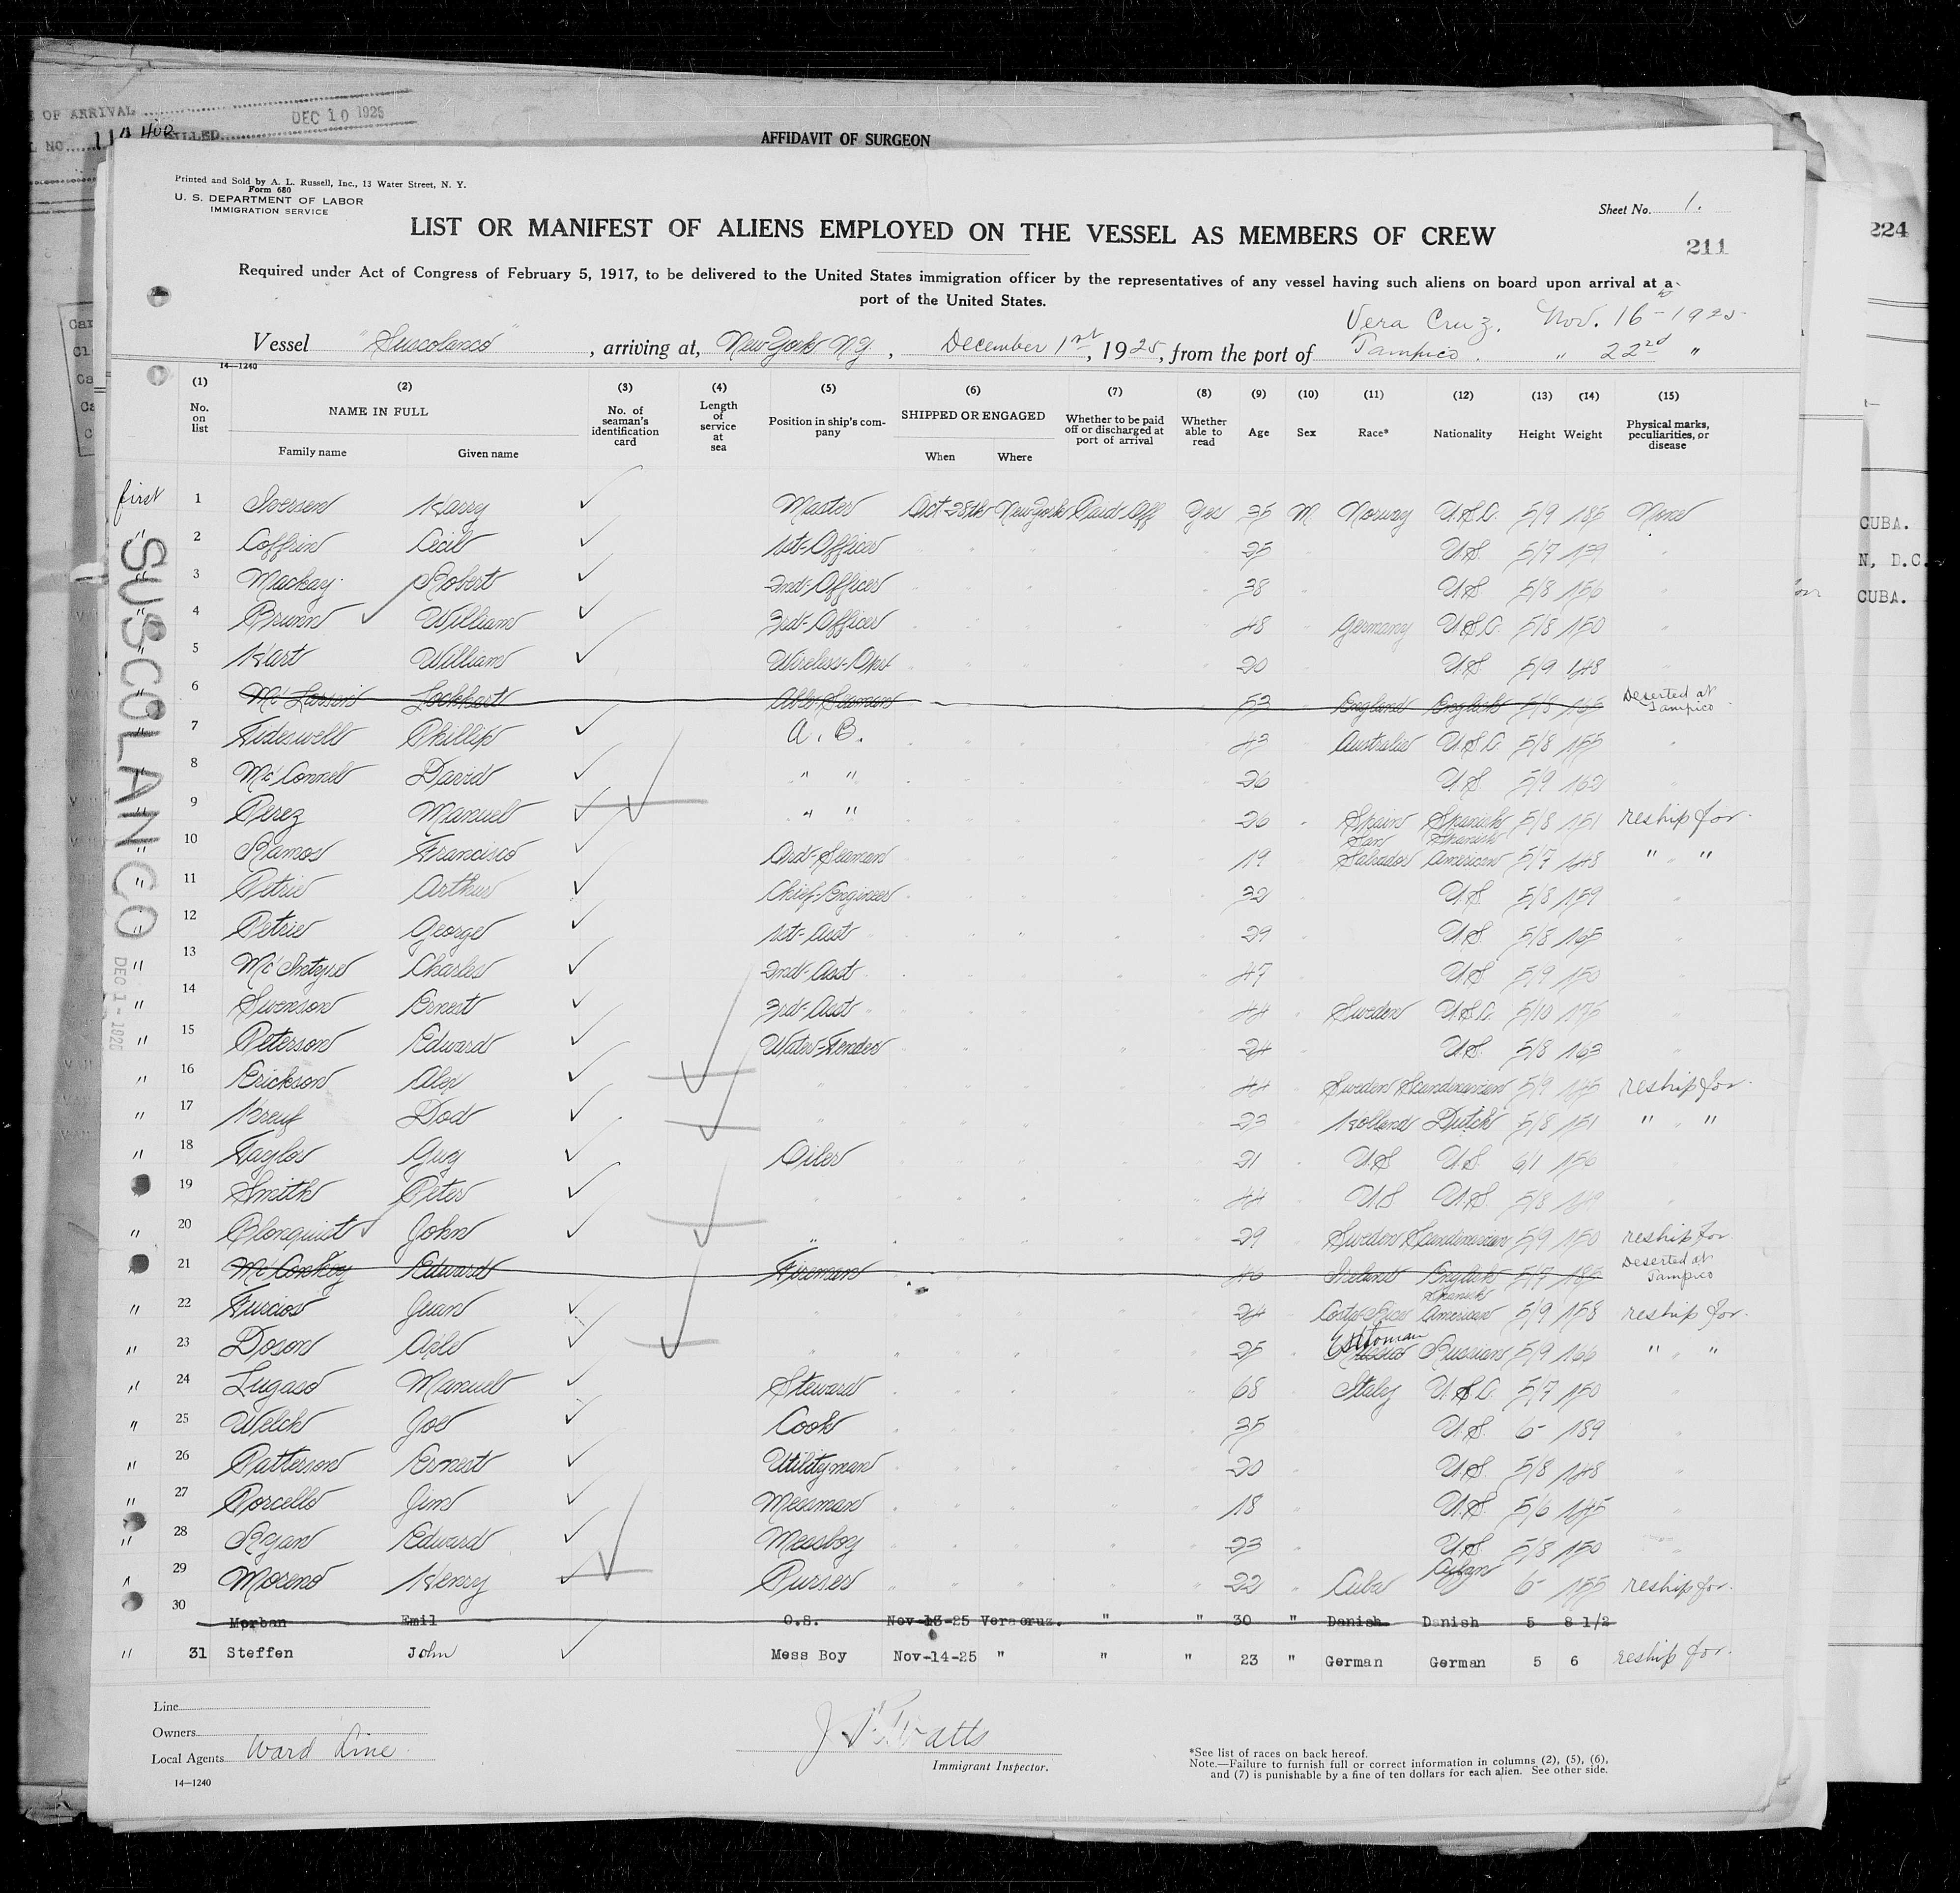 E OF ARRIVAL DEC 10 1925
L NO. FILLED
AFFIDAVIT OF SURGEON
Printed and Sold by A. L. Russell, Inc., 13 Water Street, N. Y.
Form 680
U. S. DEPARTMENT OF LABOR
IMMIGRATION SERVICE
Sheet No. 1.
LIST OR MANIFEST OF ALIENS EMPLOYED ON THE VESSEL AS MEMBERS OF CREW
211
224
Required under Act of Congress of February 5, 1917, to be delivered to the United States immigration officer by the representatives of any vessel having such aliens on board upon arrival at a
port of the United States.
Vera Cruz. Nov. 16th 1925
Vessel "Suscolanco", arriving at, New York NY, December 1st, 1925, from the port of Tampico. " 22nd "
14—1240
(1) (2) (3) (4) (5) (6) (7) (8) (9) (10) (11) (12) (13) (14) (15)
No. on list NAME IN FULL Family name Given name No. of seaman's identification card Length of service at sea Position in ship's company SHIPPED OR ENGAGED When Where Whether to be paid off or discharged at port of arrival Whether able to read Age Sex Race* Nationality Height Weight Physical marks, peculiarities, or disease
first 1 Iversen Harry Master Oct 28th New York Paid Off Yes 35 M Norway U.S.C. 5/9 185 None
2 Coffrin Cecil 1st-Officer 25 U.S. 5/7 139
3 Mackay Robert 2nd-Officer 38 U.S. 5/8 156
4 Brunn William 3rd-Officer 48 Germany U.S.C. 5/8 150
5 Hart William Wireless-Oprt 20 U.S. 5/9 148
6 Lockhart Able-Seaman 53 England English 5/8 Deserted at Tampico
7 Tideswell Phillip A. B. 43 Australia U.S.C 5/8 155
8 McConnel David " " 26 U.S. 5/9 162
9 Perez Manuel " " 26 Spain Spanish 5/8 151 reship for.
10 Ramos Francisco Ord-Seaman 19 San Salvador Spanish American 5/7 148 " " "
11 Petrie Arthur Chief-Engineer 32 U.S. 5/8 159
12 Petrie George 1st-Asst 29 U.S. 5/8 165
13 McIntyre Charles 2nd-Asst 47 U.S 5/9 150
14 Swenson Ernest 3rd-Asst 44 Sweden U.S.C. 5/10 175
15 Peterson Edward Water-Tender 24 U.S. 5/8 163
16 Erickson Alex 44 Sweden Scandinavian 5/9 reship for.
17 Dod 23 Holland Dutch 5/8 151 " " "
18 Taylor Guy Oiler 21 U.S U.S. 6/1 156
19 Smith Peter 44 U.S U.S 5/8 149
20 Blonquist John 29 Sweden Scandinavian 5/9 150 reship for
21 McConkey Edward Fireman 46 Ireland English 5/7 Deserted at Tampico
22 Juan 24 Costa-Rica Spanish American 5/9 158 reship for.
23 Doson 25 Esttonian Russian 5/9 166 " " "
24 Lugaso Manuel Steward 68 Italy U.S.C. 5/7 150
25 Welch Joe Cook 35 U.S. 6- 189
26 Patterson Ernest Utilityman 20 U.S. 5/8 148
27 Porcello Jim Messman 18 U.S. 5/6 145
28 Ryan Edward Messboy 23 U.S 5/8 150
29 Moreno Henry Purser 22 " Cuba Cuban 6- 155 reship for.
30 Morban Emil O.S. Nov-13-25 Vera cruz. " " 30 " Danish Danish 5 8 1/2
" 31 Steffen John Mess Boy Nov-14-25 " " " 23 " German German 5 6 reship for.
SUSCOLANCO DEC 1 - 1925
CUBA.
N, D.C.
CUBA.
Line
Owners
Local Agents Ward Line
14—1240
Immigrant Inspector.
*See list of races on back hereof.
Note.—Failure to furnish full or correct information in columns (2), (5), (6),
and (7) is punishable by a fine of ten dollars for each alien. See other side.